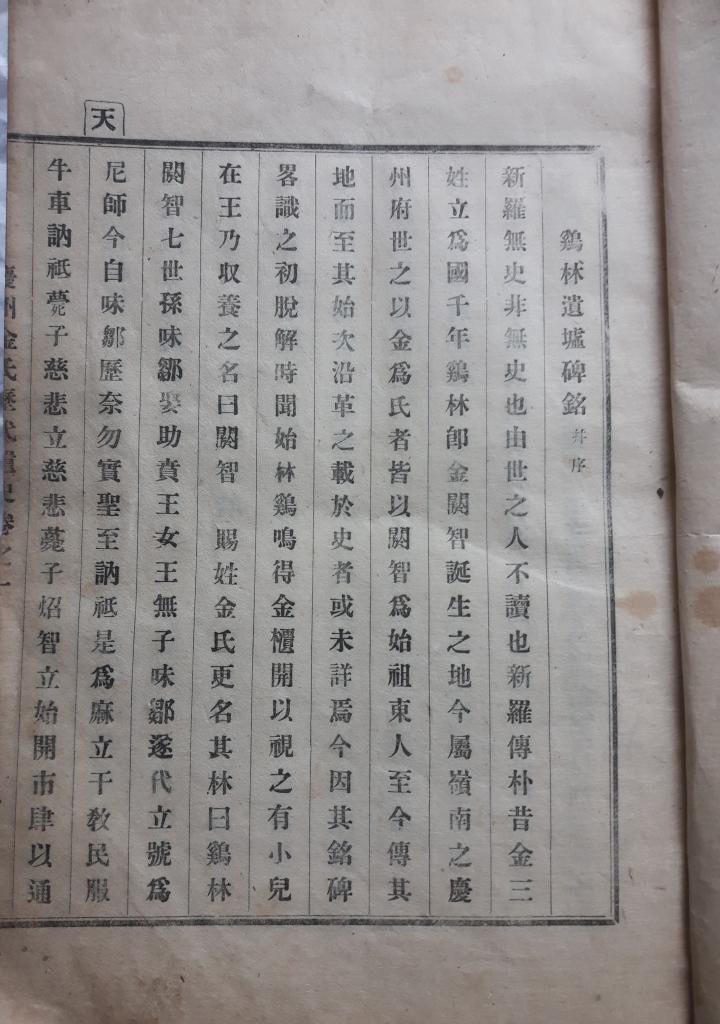 天
鷄林遺墟碑銘 幷序
新羅無史非無史也由世之人不讀也新羅傳朴昔金三
姓立爲國千年鷄林卽金閼智誕生之地今屬嶺南之慶
州府世之以金爲氏者皆以閼智爲始祖東人至今傳其
地而至其始次沿革之載於史者或未詳焉今因其銘碑
畧識之初脫解時聞始林鷄鳴得金櫃開以視之有小兒
在王乃収養之名曰閼智 賜姓金氏更名其林曰鷄林
閼智七世孫味鄒娶助賁王女王無子味鄒遂代立號爲
尼師今自味鄒歷奈勿實聖至訥祗是爲麻立干敎民服
牛車訥祗薨子慈悲立慈悲薨子炤智立始開市肆以通
慶州金氏歷代遺史卷之一